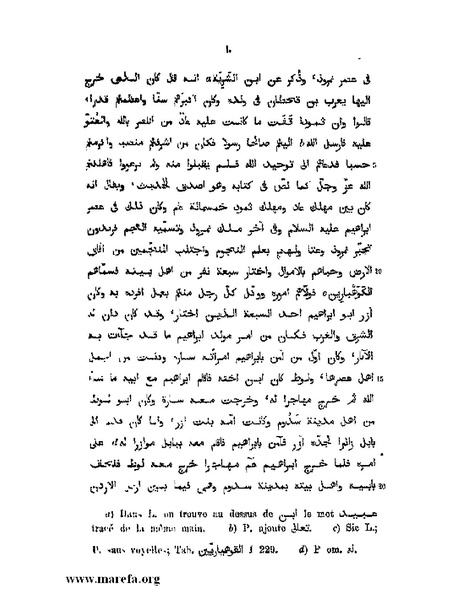 ١٠
فى عصر نمرود، وذُكر عن ابن الشَّرِيَّة انه قل كان الذى خرج
اليها يعرب بن قحطان فى ولده وكان اكبرهم سنّا واعظمهم قدرا،
قالوا وان ثمودا قفت ما كانت عليه عاد من الكفر بالله والعُتوّ
عليه فارسل الله اليهم صالحا رسولا فكان من اشرفهم منصبا واكرمهم
5 حسبا فدعاهم الى توحيد الله فلم يقبلوا منه ولم يرعووا فاهلكهم
الله عزّ وجلّ كما نصّ فى كتابه وهو اصدق الحديث، ويقال انه
كان بين مهلك عاد ومهلك ثمود خمسمائة عم وكان ذلك فى عصر
ابراهيم عليه السلام وفى آخر ملك نمرود وتسميه العجم فريدون
تجبّر نمرود وعتا ولهج بعلم النجوم واجتلب المنجّمين من آفاق
10 الارض وحباهم بالاموال واختار سبعة نفر من اهل بيته فسمّاهم
الكُوَهْبارِين فولّاهم اموره ووكل كلّ رجل منهم بعمل افرده به وكان
آزر ابو ابراهيم احد السبعة الذين اختار، وقد كان دان له
الشرق والغرب فكان من امر مولد ابراهيم ما قد جآءت به
الآثار، وكان اوّل من آمن بابراهيم امرأته سارة وكانت من اجمل
15 اهل عصرها، ولوط كان ابن اخته فاقام ابراهيم مع ابيه ما شآء
الله ثم خرج مهاجرا له، وخرجت معه سارة وكان ابو لُوط
من اهل مدينة سَدُوم وكانت امّه بنت آزر، وانما كان قدم الى
بابل زائرا لجدّه آزر فآمن بابراهيم فاقم معه ببابل موازرا له، على
امره فلما خرج ابراهيم عم مهاجرا خرج معه لوط فلحق
20 بابيه واهل بيته بمدينة سدوم وهى فيما بين ارض الاردن
a) Dans L. on trouve au dessus de ابن le mot عبيد
tracé de la même main. b) P. ajoute تعالى. c) Sic L.;
P. sans voyelles; Tab. القوهياريّين I 229. d) P om. ما.
www.marefa.org